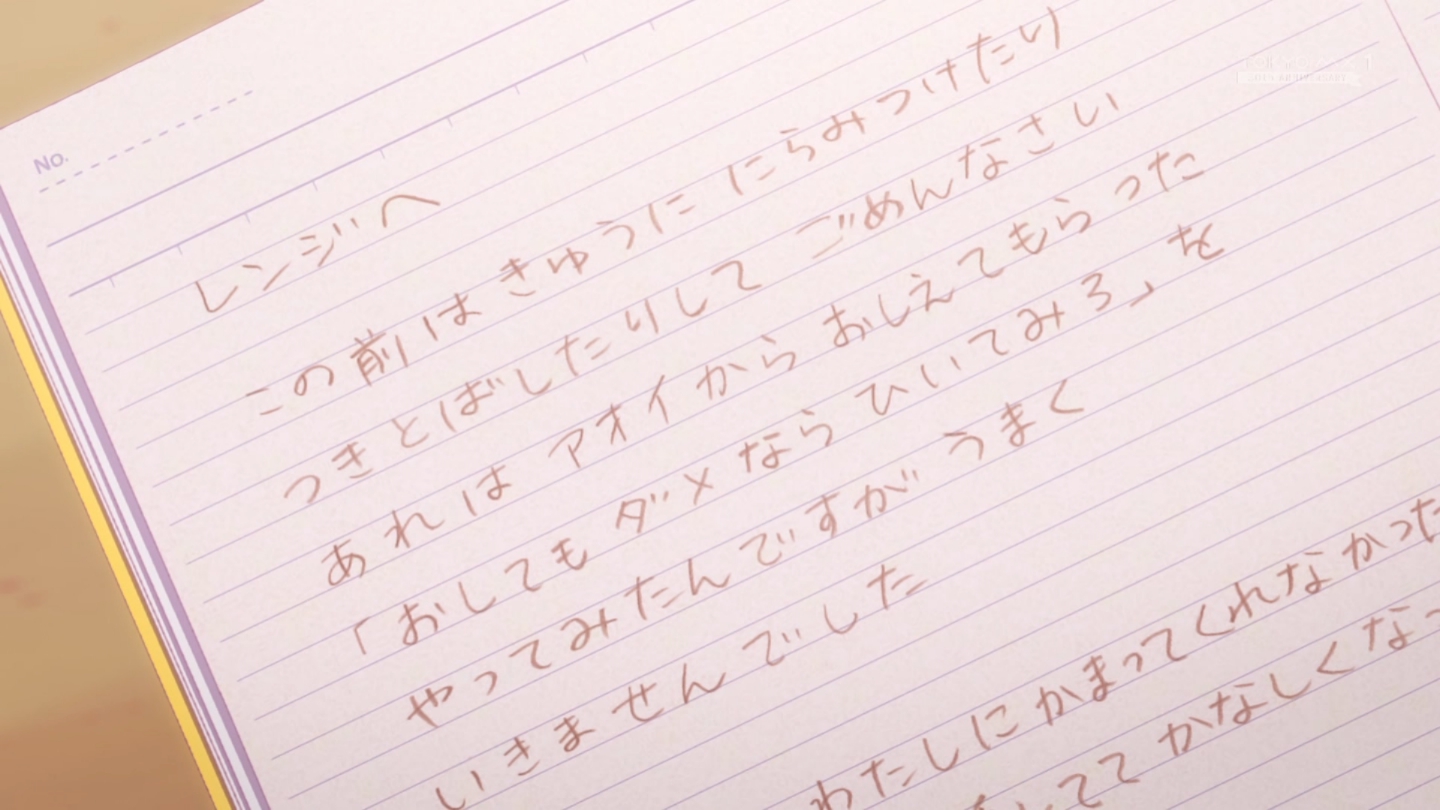 No.
レンジへ
この前は きゅうに にらみつけたり
つきとばしたりして ごめんなさい
あれは アオイから おしえてもらった
「おしても ダメなら ひいてみろ」を
やってみたんですが うまく
いきませんでした
わたしに かまってくれなかった
かなしくなっ